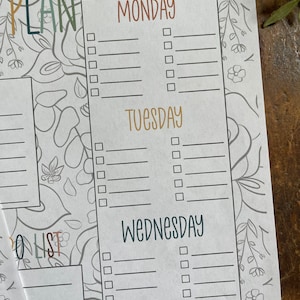 PLAN
MONDAY
TUESDAY
WEDNESDAY
O LIST